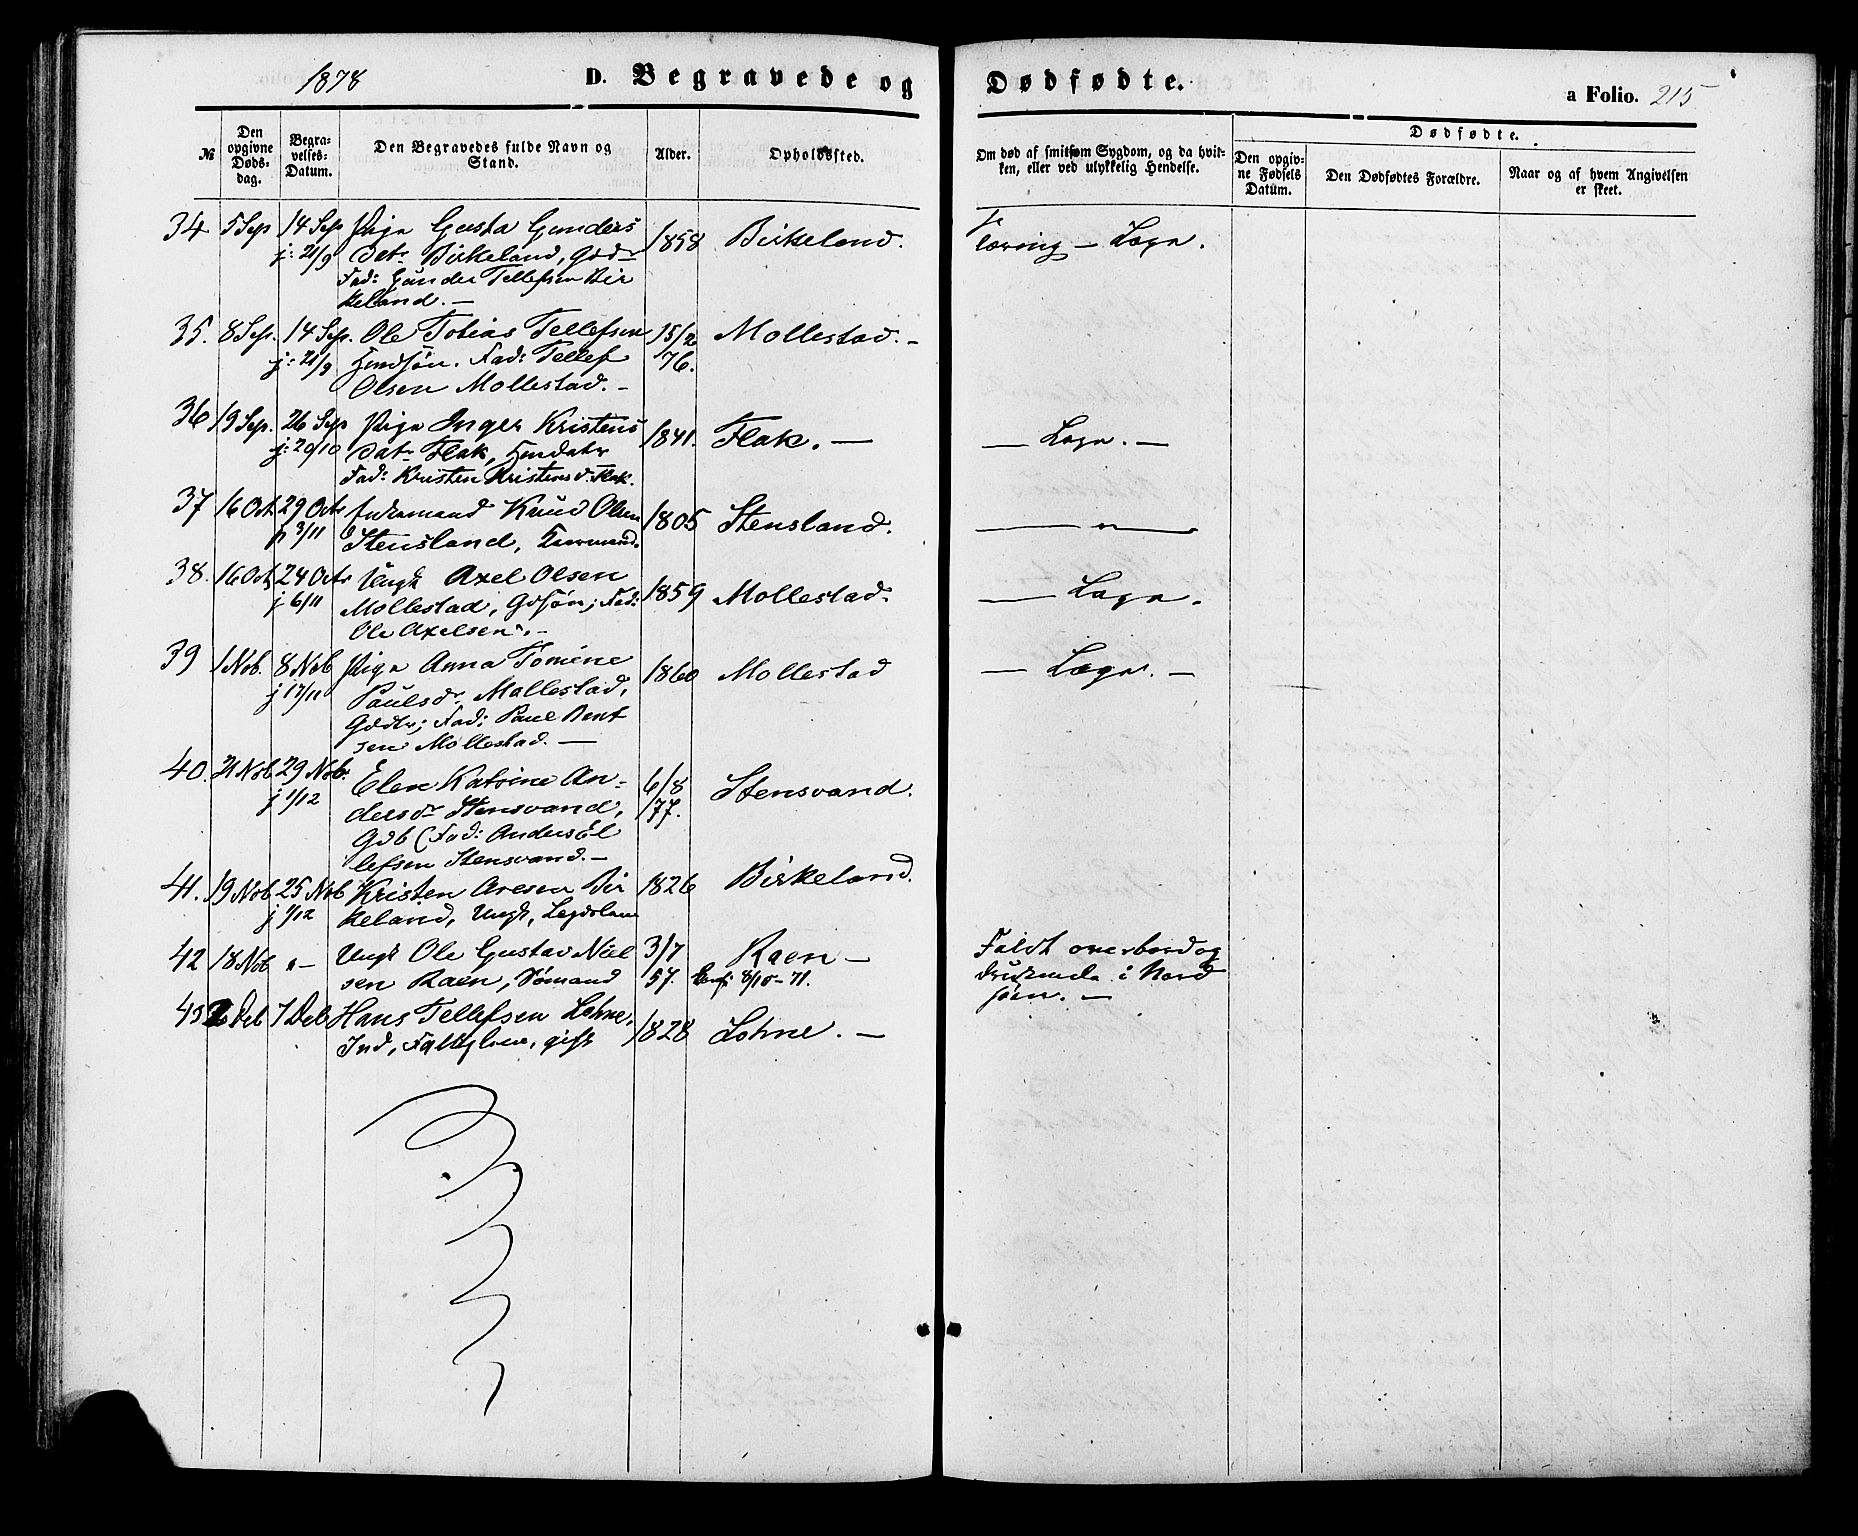 1878
D. Begravede og Dødfødte.
a Folio. 215
№
Den opgivne Døds-dag.
Begra-velses-Datum.
Den Begravedes fulde Navn og Stand.
Alder.
Opholdssted.
Om død af smitsom Sygdom, og da hvil-ken, eller ved ulykkelig Hendelse.
Dødfødte.
Den opgiv-ne Fødsels Datum.
Den Dødfødtes Forældre.
Naar og af hvem Angivelsen er skeet.
34 5 Sep 14 Sep Pige Gusta Gunders 1858 Birkeland. Tæring – Læge.
j: 21/9 datr Birkeland, Gdd
Fad: Gunder Tellefsen Bir
keland. –
35. 8 Sep. 14 Sep. Ole Tobias Tellefsen 15/2 Mollestad. –
j: 21/9 Fad: Tellef 76.
Olsen Mollestad. –
36 19 Sep. 26 Sep Pige Inger Kristens 1841. Flak. – – Læge. –
j: 20/10 datr Flak,
Fad: Kristen Kristensd. Flak.
37 16 Oct 29 Octr Knud Olsen 1805 Stensland. – " –
p 3/11 Stensland,
38. 16 Oct 24 Octr Ungk Axel Olsen 1859 Mollestad. – Læge.
j 6/11 Mollestad, Gdsøn; Fad:
Ole Axelsen. –
39 1 Nob. 8 Nob Pige Anna Tomine 1860 Mollestad – Læge. –
j 17/11 Paulsdr Mollestad,
Gddtr; Fad: Paul Bent
sen Mollestad. –
40. 21 Nob 29 Nobr. Elen Katrine An- 6/8 Stensvand.
j 1/12 dersdr Stensvand, 77.
Gdb (Fad: Anders Øl
lefsen Stensvand. –
41. 19 Nob 25 Nob Kristen Aresen Bir 1826 Birkeland.
j 1/12 keland, Ungk, Legdslem
42 18 Nob " – Ungk Ole Gustav Niel 3/7 Raen – Faldt overbord og
sen Raen, Sømand 57. Conf. 8/10 – 71. druknede i Nord
søen. –
43 2 Deb 7 Deb Hans Tellefsen Lohne, 1828 Lohne. –
Ind, gift